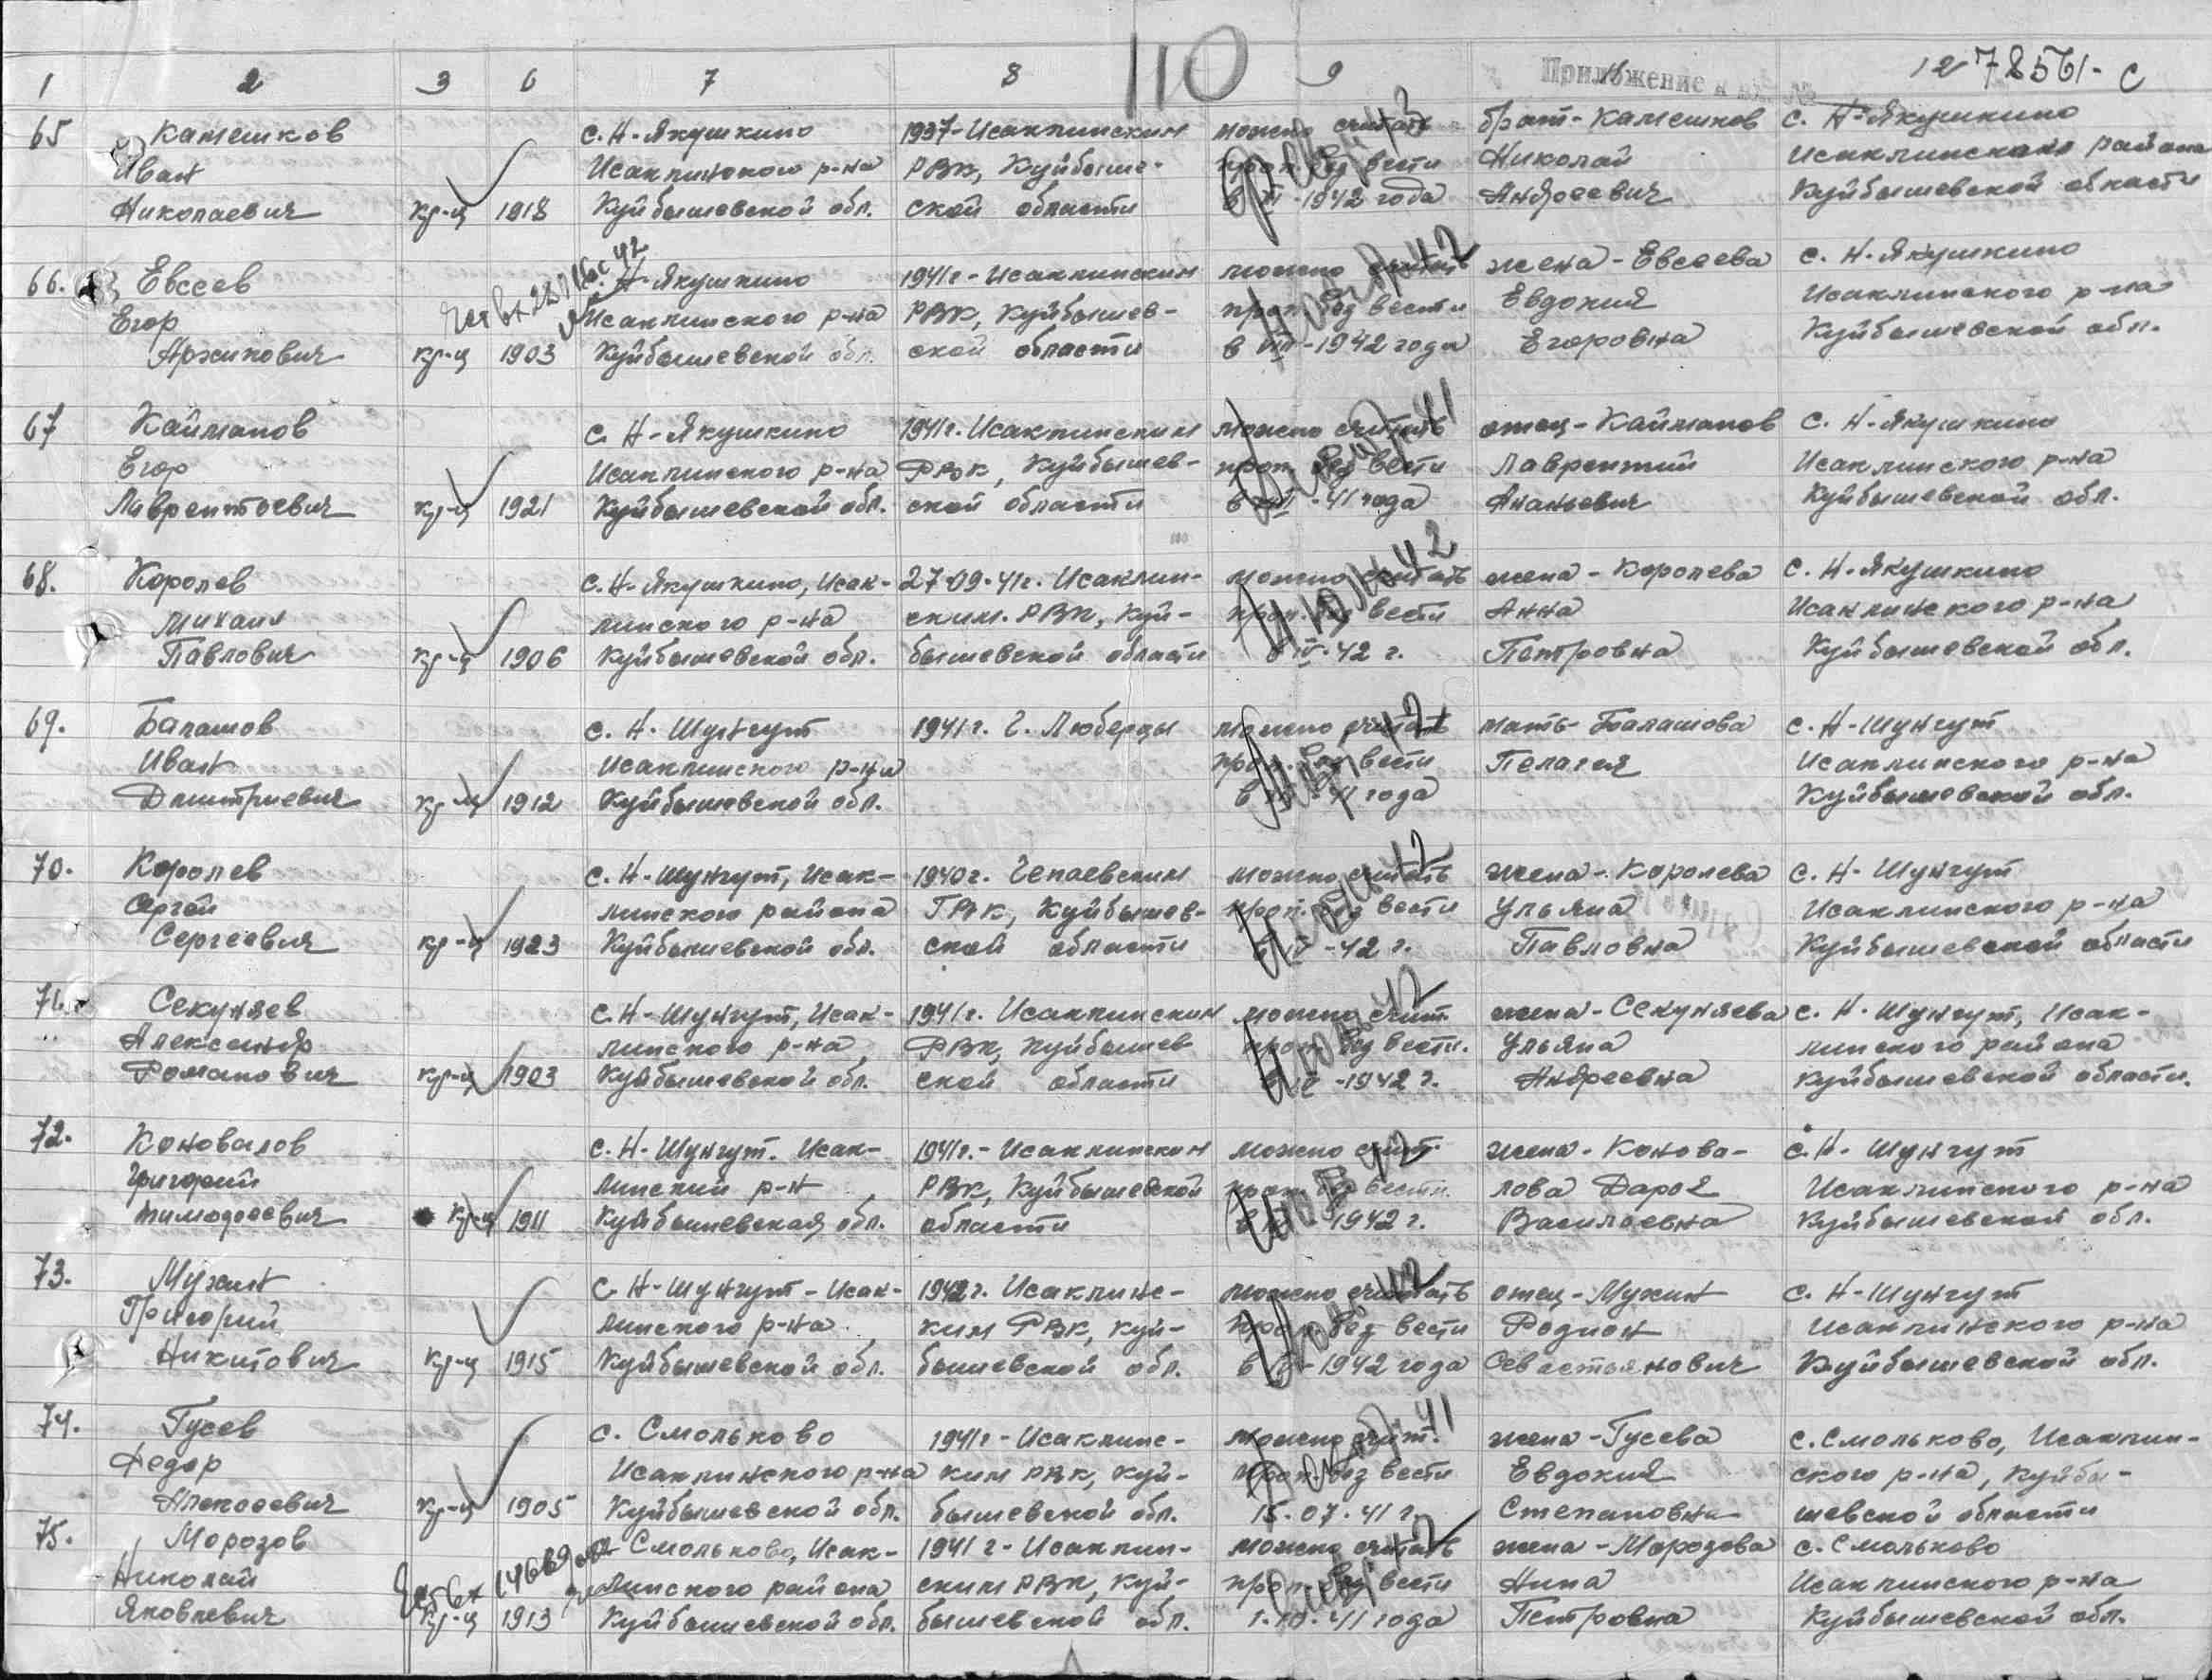 110
Приложение к вх. №
78561-с
1 2 3 6 7 8 9 11 12
65 Камешков с. Н-Якушкино 1937-Исаклинским можно считать брат-Камешков с. Н-Якушкино
Иван Исаклинского р-на РВК, Куйбыше- проп. без вести Николай Исаклинского района
Николаевич кр-ц 1918 Куйбышевской обл. ской области в -1942 года Андреевич Куйбышевской области
66. Евсеев с. Н-Якушкино 1941г-Исаклинским можно считать жена-Евсеева с. Н-Якушкино
Егор Исаклинского р-на РВК, Куйбышев- проп. без вести Евдокия Исаклинского р-на
Архипович кр-ц 1903 Куйбышевской обл. ской области в VIII-1942 года Егоровна Куйбышевской обл.
67 Кайманов с. Н-Якушкино 1941г. Исаклинским можно считать отец-Кайманов с. Н-Якушкино
Егор Исаклинского р-на РВК, Куйбышев- проп. без вести Лаврентий Исаклинского р-на
Лаврентьевич кр-ц 1921 Куйбышевской обл. ской области в -41 года Ананьевич Куйбышевской обл.
68. Королев с. Н-Якушкино, Исак- 27-09-41г. Исаклин- можно считать жена-Королева с. Н-Якушкино
Михаил линского р-на ским. РВК, Куй- проп. без вести Анна Исаклинского р-на
Павлович кр-ц 1906 Куйбышевской обл. бышевской области в IV-42 г. Петровна Куйбышевской обл.
69. Балашов с. Н-Шунгут 1941г. г. Люберцы можно считать мать-Балашова с. Н-Шунгут
Иван Исаклинского р-на проп. без вести Пелагея Исаклинского р-на
Дмитриевич кр-ц 1912 Куйбышевской обл. в 41 года Куйбышевской обл.
70. Королев с. Н-Шунгут, Исак- 1940г. Чепаевским можно считать жена-Королева с. Н-Шунгут
Сергей линского района ГВК, Куйбышев- проп. без вести Ульяна Исаклинского р-на
Сергеевич кр-ц 1923 Куйбышевской обл. ской области в IV-42 г. Павловна Куйбышевской области
71. Секуняев с. Н-Шунгут, Исак- 1941г. Исаклинским можно счит. жена-Секуняева с. Н-Шунгут, Исак-
Александр линского р-на, РВК, Куйбышев проп. без вести. Ульяна линского района
Романович кр-ц 1903 Куйбышевской обл. ской области в IV-1942 г. Андреевна Куйбышевской области.
72. Коновалов с. Н-Шунгут. Исак- 1941г.-Исаклинским можно счит. жена-Конова- с. Н-Шунгут
Григорий линский р-н РВК, Куйбышевской проп. без вести. лова Дарья Исаклинского р-на
Тимофеевич кр-ц 1911 Куйбышевская обл. области в 1942 г. Васильевна Куйбышевской обл.
73. Мухин с. Н-Шунгут-Исак- 1942г. Исаклинс- можно считать отец-Мухин с. Н-Шунгут
Григорий линского р-на. ким РВК, Куй- проп. без вести Родион Исаклинского р-на
Никитович кр-ц 1915 Куйбышевской обл. бышевской обл. в -1942 года Севастьянович Куйбышевской обл.
74. Гусев с. Смольково 1941г-Исаклинс- можно счит. жена-Гусева с. Смольково, Исаклин-
Федор Исаклинского р-на ким РВК, Куй- проп. без вести Евдокия ского р-на, Куйбы-
Алексеевич кр-ц 1905 Куйбышевской обл. бышевской обл. 15.07.41 г. Степановна шевской области
75. Морозов Смольково, Исак- 1941 г-Исаклин- можно считать жена-Морозова с. Смольково
Николай линского района ским РВК, Куй- проп. без вести Нина Исаклинского р-на
Яковлевич кр-ц 1913 Куйбышевской обл. бышевской обл. 1.10.41 года Петровна Куйбышевской обл.